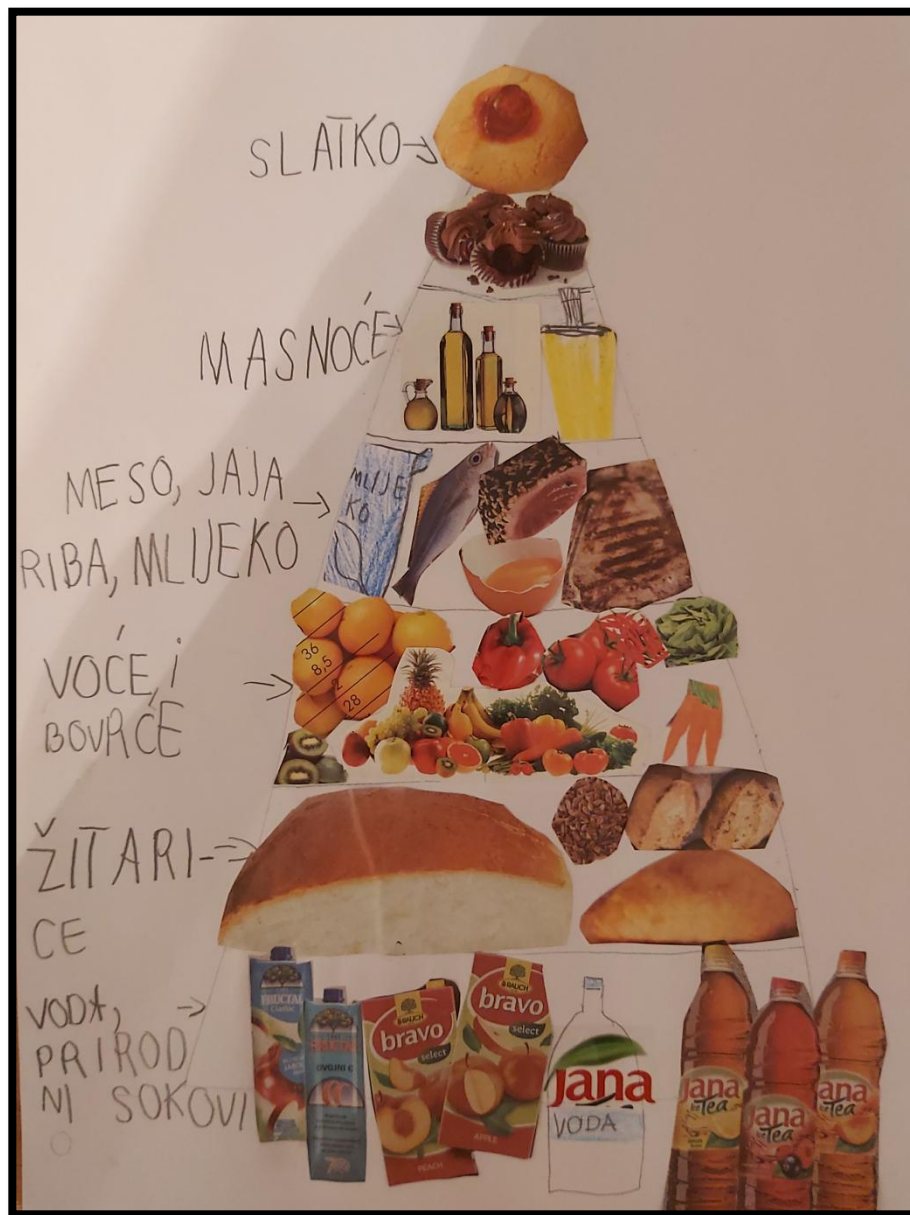 SLATKO
MASNOĆE
MLIJE
KO
MESO, JAJA
RIBA, MLIJEKO
36
8,5
2
28
VOĆE, i
BOVRĆE
ŽITARI-
CE
VODA,
PRIROD
NI SOKOVI
FRUCTAL
Classic
DVOJNI C
RAUCH
bravo
select
PEACH
RAUCH
bravo
select
APPLE
Jana
VODA
Jana
Ice Tea
Jana
Ice Tea
Jana
Ice Tea